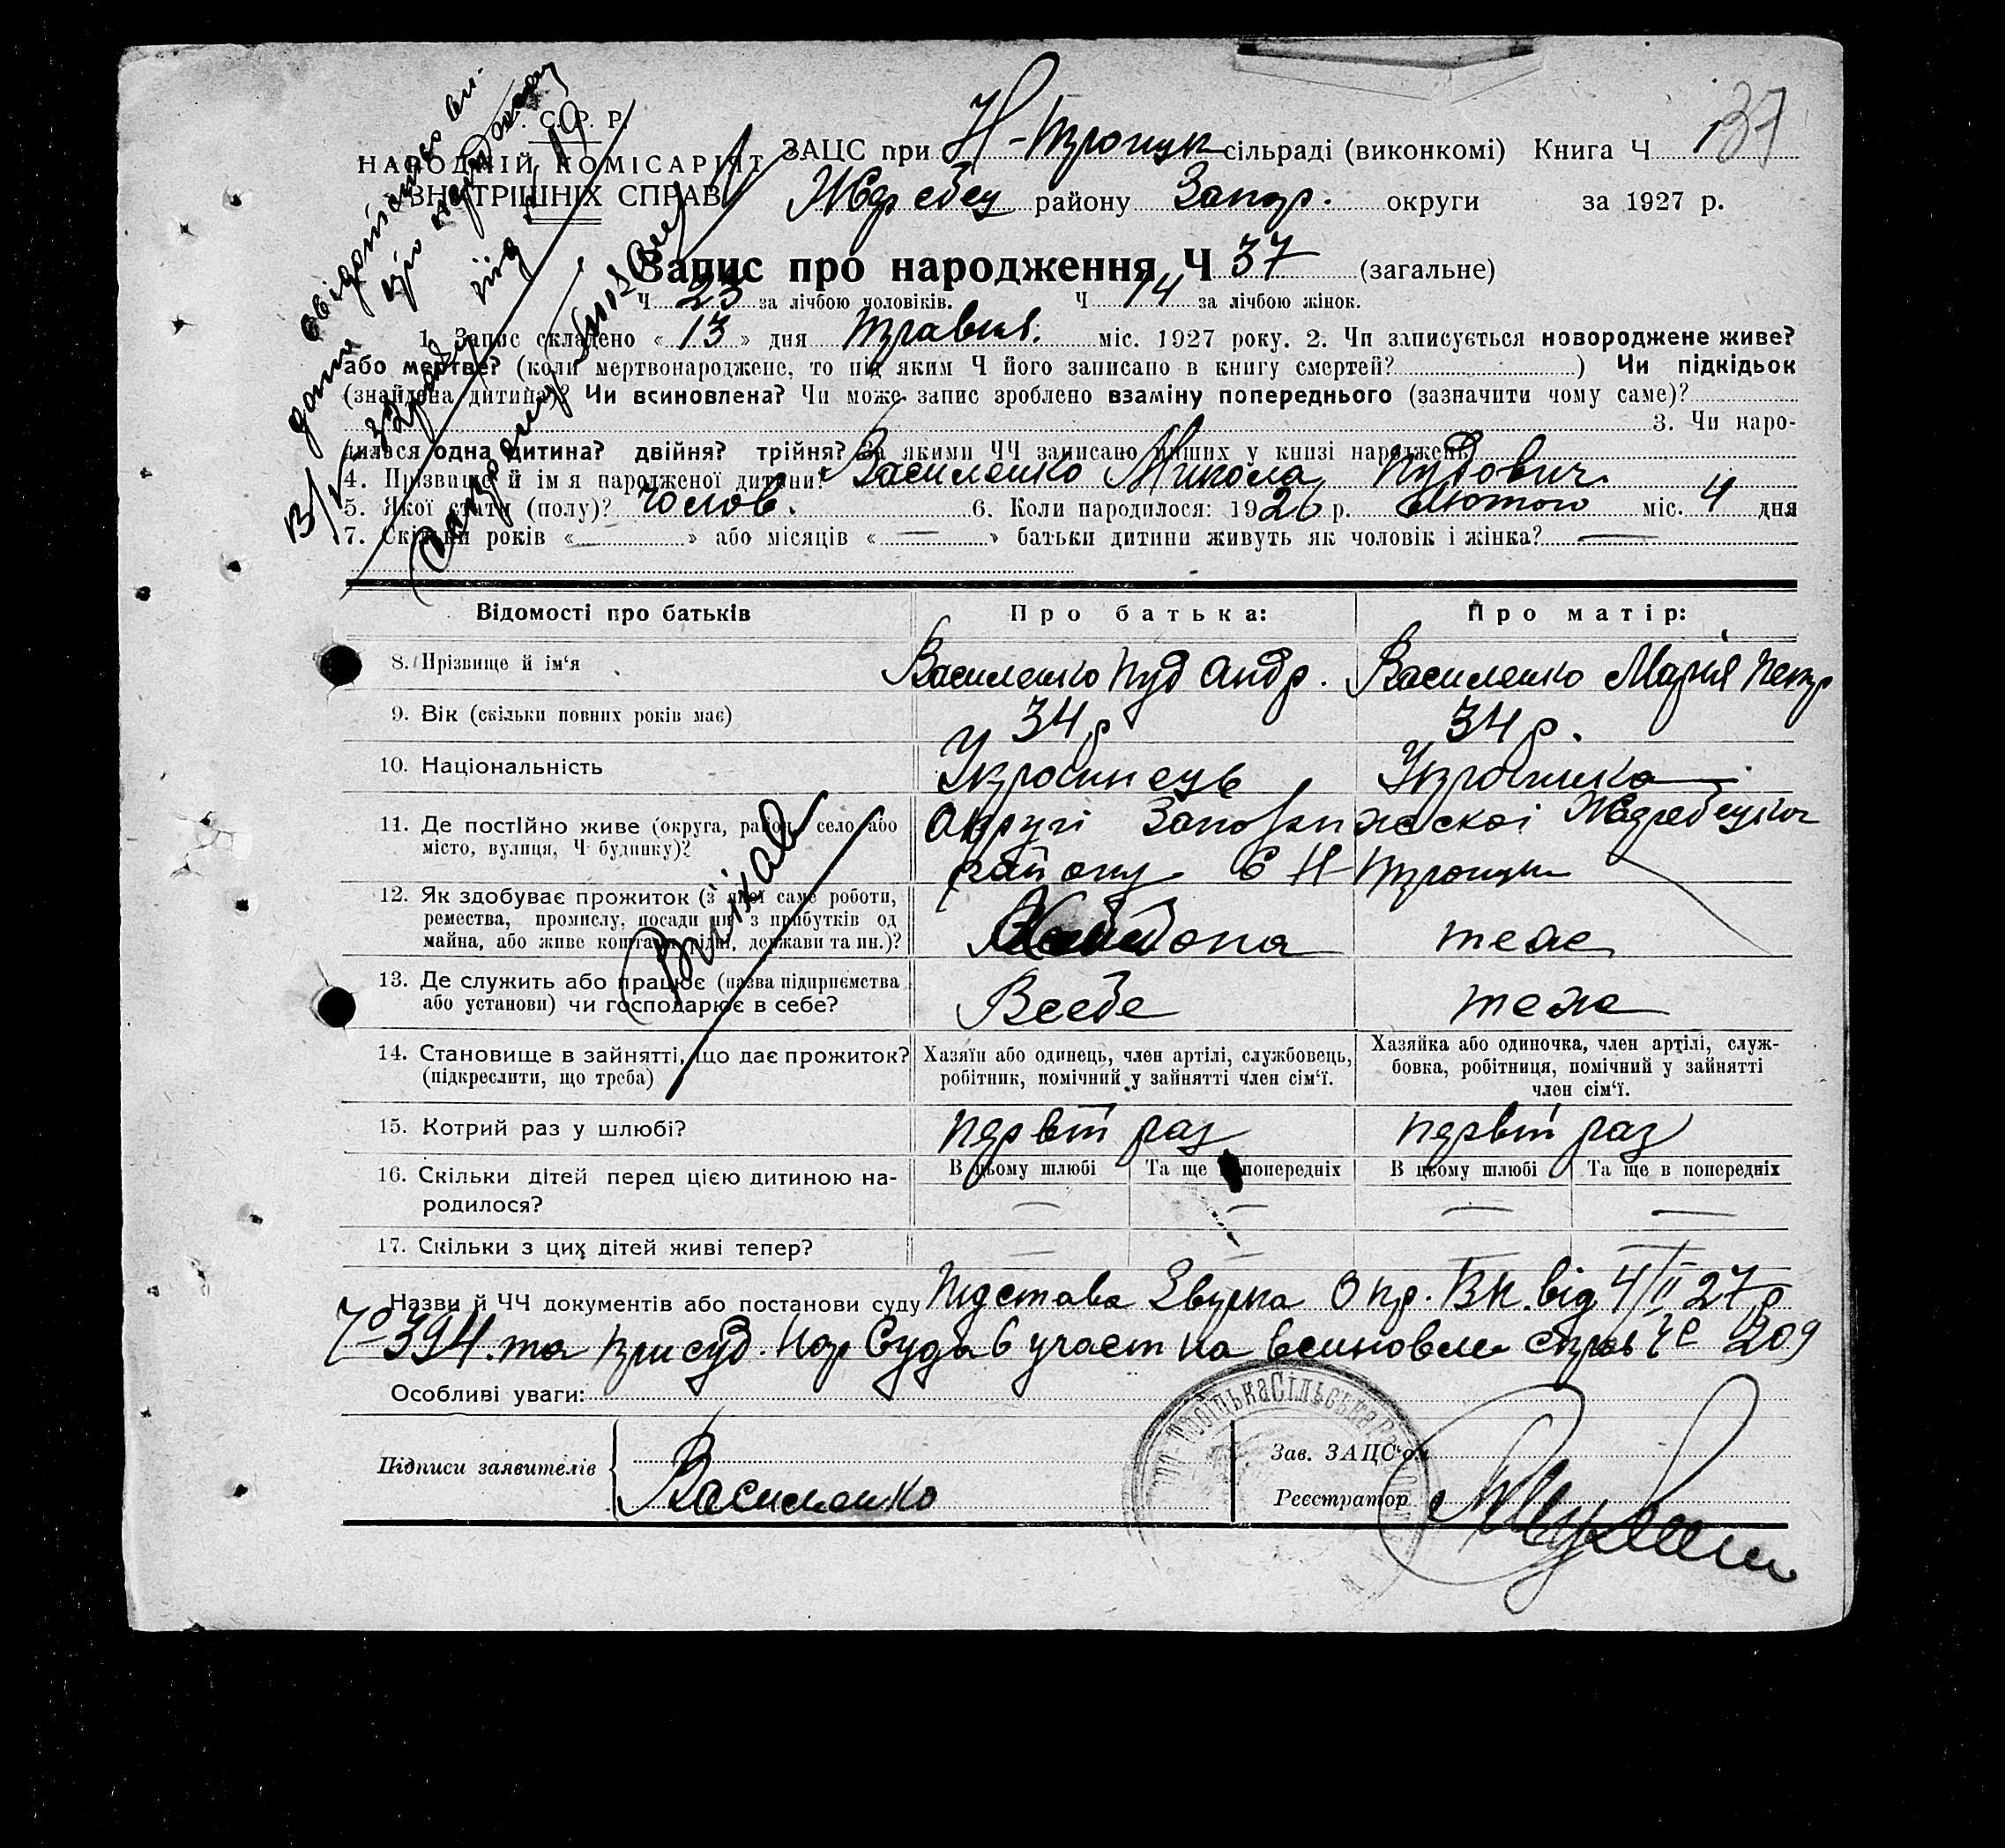 137
С. Р. Р.
НАРОДНІЙ КОМІСАРІЯТ
ВНУТРІШНІХ СПРАВ
ЗАЦС при Н-Троицк сільраді (виконкомі) Книга Ч 1
Жеребец району Запор. округи за 1927 р.
Запис про народження Ч 37 (загальне)
Ч 23 за лічбою чоловіків. Ч 14 за лічбою жінок.
1. Запис складено « 13 » дня травня. міс. 1927 року. 2. Чи записується новороджене живе?
або мертве? (коли мертвонароджене, то під яким Ч його записано в книгу смертей? ) Чи підкідьок
(знайдена дитина)? Чи всиновлена? Чи може запис зроблено взаміну попереднього (зазначити чому саме)?
3. Чи наро-
дилася одна дитина? двійня? трійня? За якими ЧЧ записано инших у книзі народжень
4. Прізвище й імя народженої дитини? Василенко Микола Пудович
5. Якої стати (полу)? Чолов. 6. Коли народилося: 1926 р. Лютого міс. 4 дня
7. Скільки років « — » або місяців « — » батьки дитини живуть як чоловік і жінка? —
Відомості про батьків Про батька: Про матір:
8. Прізвище й ім‘я Василенко Пуд Андр. Василенко Марія Петр
9. Вік (скільки повних років має) 34 р 34 р.
10. Національність Українець Українка
11. Де постійно живе (округа, район, село або
місто, вулиця, Ч будинку)?
Округі Запорижскоі Жеребецьк
району с Н-Троицьк
12. Як здобуває прожиток (з якої саме роботи,
ремества, промислу, посади чи з прибутків од
майна, або живе коштами рідні, держави та ин.)?
теж
13. Де служить або працює (назва підприємства
або установи) чи господарює в себе?
Всебе теж
14. Становище в зайнятті, що дає прожиток?
(підкреслити, що треба)
Хазяїн або одинець, член артілі, службовець,
робітник, помічний у зайнятті член сім‘ї.
Хазяйка або одиночка, член артілі, служ-
бовка, робітниця, помічний у зайнятті
член сім‘ї.
15. Котрий раз у шлюбі? первій раз первій раз
16. Скільки дітей перед цією дитиною на-
родилося?
В цьому шлюбі Та ще в попередніх В цьому шлюбі Та ще в попередніх
— — — —
17. Скільки з цих дітей живі тепер? — — — —
Назви й ЧЧ документів або постанови суду Підстава Звуска Окр. ВК. від 4/II 27 р
394. та присуд. Нар Суда 6 участ на всиновле справ 209
Особливі уваги:
Підписи заявителів Василенко
Зав. ЗАЦС‘ом
Реєстратор
Вніхав